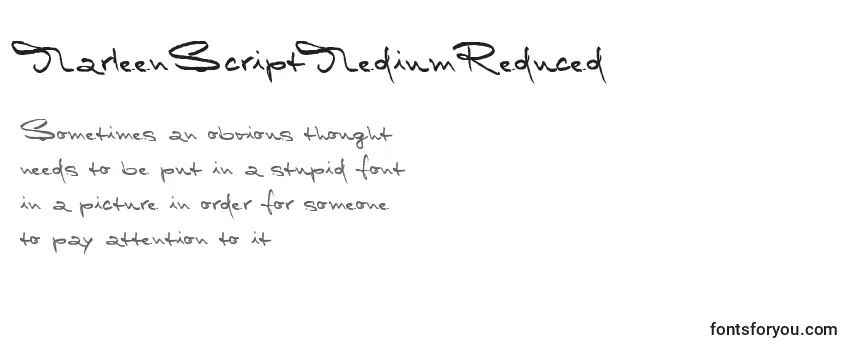 MarleenScriptMediumReduced
Sometimes an obvious thought
needs to be put in a stupid font
in a picture in order for someone
to pay attention to it
fontsforyou.com